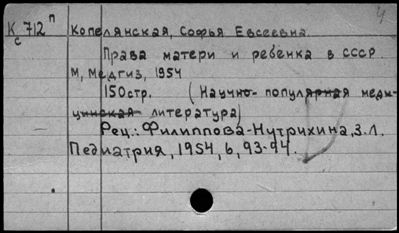 К 712 п Копелянская, Софья Евсеевна.
с
Права матери и ребенка в СССР
М, Медгиз, 1954
150стр. (Научно- популярная меди-
цинская литература)
Рец.: Филиппова-Нутрихина, З.Л.
Педиатрия, 1954, 6, 93-94.